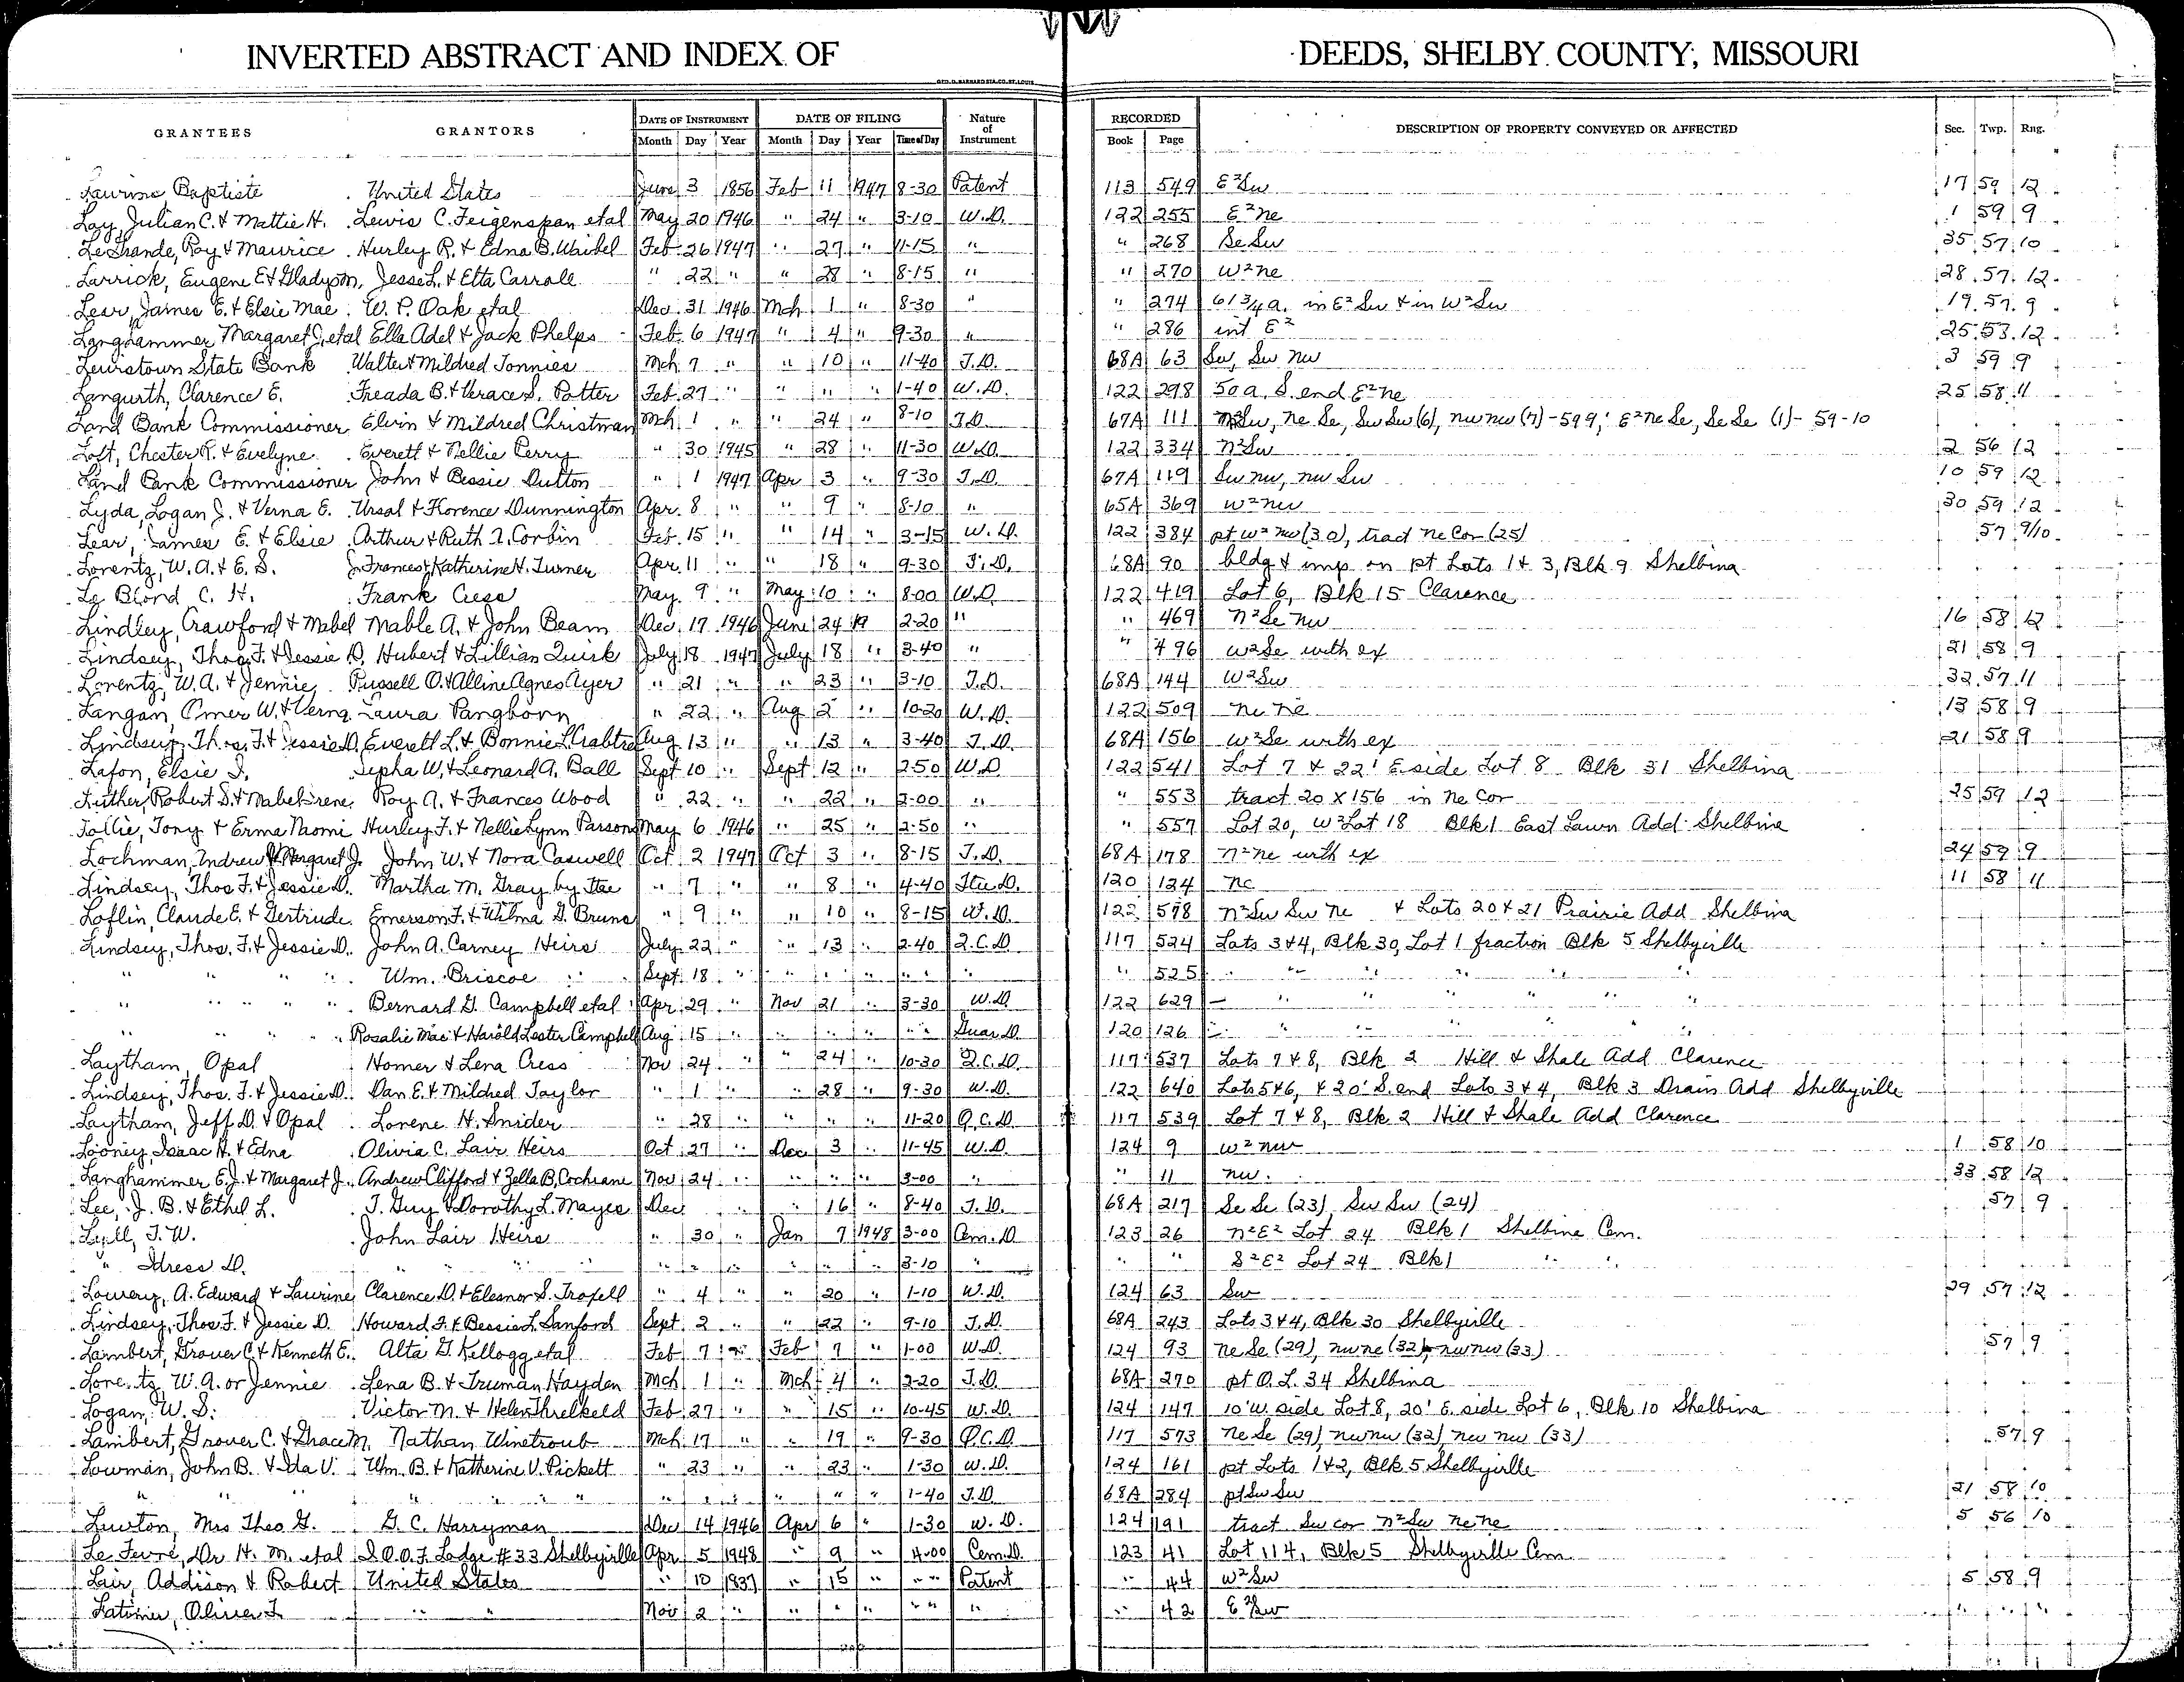 INVERTED ABSTRACT AND INDEX OF DEEDS, SHELBY COUNTY, MISSOURI
GEO. D. BARNARD STA. CO. ST. LOUIS
GRANTEES GRANTORS DATE OF INSTRUMENT DATE OF FILING Nature of Instrument RECORDED DESCRIPTION OF PROPERTY CONVEYED OR AFFECTED Sec. Twp. Rng.
Month Day Year Month Day Year Time of Day Book Page
Baptiste United States June 3 1856 Feb 11 1947 8-30 Patent 113 549 E²Sw 17 59 12
Lay, Julian C. & Mattie H. Lewis C. Feigenspan etal May 20 1946 " 24 " 3-10 W.D. 122 255 E²ne 1 59 9
LeGrande, Roy & Maurice Hurley R. & Edna B. Waibel Feb. 26 1947 " 27 " 11-15 " " 268 Se Sw 35 57 10
Larrick, Eugene E & Gladys m. Jesse L. & Etta Carroll " 22 " " 28 " 8-15 " " 270 W²ne 28 57 12
Lear, James E. & Elsie Mae W. P. Oak etal Dec. 31 1946 Mch 1 " 8-30 " " 274 61 3/4 a. in E² Sw & in W² Sw 19 57 9
Langhammer Margaret J. etal Ella Adel & Jack Phelps Feb. 6 1947 " 4 " 9-30 " " 286 int E² 25 53 12
Lewistown State Bank Walter & Mildred Tonnies Mch 7 " " 10 " 11-40 T.D. 68A 63 Sw, Sw nw 3 59 9
Langurth, Clarence E. Freada B. & Verace S. Potter Feb. 27 " " " " 1-40 W.D. 122 298 50 a. S. end E²ne 25 58 11
Land Bank Commissioner Elvin & Mildred Christman Mch 1 " " 24 " 8-10 T.D. 67A 111 Sw, ne Se, Sw Sw (6), nw nw (7) - 59 9; E² ne Se, Se Se (1) - 59-10
Loft, Chester R. & Evelyne Everett & Nellie Perry " 30 1945 " 28 " 11-30 W.D. 122 334 n²Sw 2 56 12
Land Bank Commissioner John & Bessie Dutton " 1 1947 Apr 3 " 9-30 T.D. 67A 119 Sw nw, nw Sw 10 59 12
Lyda, Logan J. & Verna E. Ursal & Florence Dunnington Apr. 8 " " 9 " 8-10 " 65A 369 W²nw 30 59 12
Lear, James E. & Elsie Arthur & Ruth A. Corbin Feb. 15 " " 14 " 3-15 W.D. 122 384 pt W² nw (30), tract ne Cor (25) 57 9/10
Lorentz, W. A. & E. S. J. Frances & Katherine H. Turner Apr. 11 " " 18 " 9-30 T.D. 68A 90 bldg & imp on pt Lots 1 & 3, Blk 9 Shelbina
Le Blond C. H. Frank Cress May 9 " May 10 " 8-00 W.D. 122 419 Lot 6, Blk 15 Clarence
Lindley, Crawford & Mabel Mable A. & John Beam Dec. 17 1946 June 24 19 2-20 " " 469 n²Se nw 16 58 12
Lindsey, Thos. F. & Jessie D. Hubert & Lillian Quirk July 18 1947 July 18 " 3-40 " " 496 W²Se with ex 21 58 9
Lorentz, W. A. & Jennie Russell O. & Alline Agnes Ayer " 21 " " 23 " 3-10 T.D. 68A 144 W²Sw 32 57 11
Langan, Omer W. & Verna Laura Pangborn " 22 " Aug 2 " 10-20 W.D. 122 509 ne ne 13 58 9
Lindsey, Thos. F. & Jessie D. Everett L. & Bonnie L. Crabtre Aug 13 " " 13 " 3-40 T.D. 68A 156 W²Se with ex 21 58 9
Lafon, Elsie I. Sepha W. & Leonard A. Ball Sept 10 " Sept 12 " 2-50 W.D. 122 541 Lot 7 & 22' E side Lot 8 Blk 31 Shelbina
Luther, Robert S. & Mabel Irene Roy A. & Frances Wood " 22 " " 22 " 2-00 " " 553 tract 20 X 156 in ne cor 25 59 12
Lollie, Tony & Erma Naomi Hurley F. & Nellie Lynn Parsons May 6 1946 " 25 " 2-50 " " 557 Lot 20, W² Lot 18 Blk 1 East Lawn Add Shelbina
Lochman, Andrew & Margaret J. John W. & Nora Caswell Oct 2 1947 Oct 3 " 8-15 T.D. 68A 178 n²ne with ex 24 59 9
Lindsey, Thos F. & Jessie D. Martha M. Gray by Ttee " 7 " " 8 " 4-40 Ttee D. 120 124 ne 11 58 11
Loflin, Claude E. & Gertrude Emerson F. & Wilma G. Bruns " 9 " " 10 " 8-15 W.D. 122 598 n²Sw Sw ne & Lots 20 & 21 Prairie Add Shelbina
Lindsey, Thos. F. & Jessie D. John A. Carney Heirs July 22 " " 13 " 2-40 Q.C.D. 117 524 Lots 3 & 4, Blk 30, Lot 1 fraction Blk 5 Shelbyville
" " " " " Wm. Briscoe Sept. 18 " " " " " " " 525 " " " " "
" " " " " Bernard G. Campbell etal Apr. 29 " Nov 21 " 3-30 W.D. 122 629 " " " " "
" " " " " Rosalie Mae & Harold Lester Campbell Aug 15 " " " " " Guar D. 120 126 " " " " "
Laytham, Opal Homer & Lena Cress Nov 24 " " 24 " 10-30 Q.C.D. 117 537 Lots 7 & 8, Blk 2 Hill & Shale Add Clarence
Lindsey, Thos. F. & Jessie D. Dan E. & Mildred Taylor " 1 " " 28 " 9-30 W.D. 122 640 Lots 5 & 6, & 20' S. end Lots 3 & 4, Blk 3 Drain Add Shelbyville
Laytham, Jeff D. & Opal Lorene H. Snider " 28 " " " " 11-20 Q.C.D. 117 539 Lot 7 & 8, Blk 2 Hill & Shale Add Clarence
Looney, Isaac H. & Edna Olivia C. Lair Heirs Oct 27 " Dec 3 " 11-45 W.D. 124 9 W² nw 1 58 10
Langhammer E. J. & Margaret J. Andrew Clifford & Zella B. Cochrane Nov 24 " " " " 3-00 " " 11 nw 33 58 12
Lee, J. B. & Ethel L. T. Guy & Dorothy L. Mayes Dec " 16 " 8-40 T.D. 68A 217 Se Se (23), Sw Sw (24) 57 9
Lyell, T. W. John Lair Heirs " 30 " Jan 7 1948 3-00 Cem. D 123 26 n²E² Lot 24 Blk 1 Shelbina Cem.
" Idress D. " " " " " " " " 3-10 " " " S²E² Lot 24 Blk 1 " "
Lowery, A. Edward & Laurine Clarence D. & Eleanor S. Trofell " 4 " " 20 " 1-10 W.D. 124 63 Sw 29 57 12
Lindsey, Thos. F. & Jessie D. Howard F. & Bessie L. Sanford Sept. 2 " " 22 " 9-10 T.D. 68A 243 Lots 3 & 4, Blk 30 Shelbyville
Lambert, Grover C. & Kenneth E. Alta G. Kellogg etal Feb 7 Feb 7 " 1-00 W.D. 124 93 ne Se (29), nw ne (32), nw nw (33) 57 9
Lorentz, W. A. or Jennie Lena B. & Truman Hayden Mch 1 " Mch 4 " 2-20 T.D. 68A 270 pt O. L. 34 Shelbina
Logan, W. S. Victor M. & Helen Threlkeld Feb 27 " " 15 " 10-45 W.D. 124 147 10' W. side Lot 8, 20' E. side Lot 6, Blk 10 Shelbina
Lambert, Grover C. & Grace M. Nathan Winetroub Mch. 17 " " 19 " 9-30 Q.C.D. 117 573 ne Se (29), nw nw (32), nw nw (33) 57 9
Lowman, John B. & Ida V. Wm. B. & Katherine V. Pickett " 23 " " 23 " 1-30 W.D. 124 161 pt Lots 1 & 2, Blk 5 Shelbyville
" " " " " " " " " " " " " 1-40 T.D. 68A 284 pt Sw Sw 21 58 10
Luxton, Mrs Theo G. G. C. Harryman Dec 14 1946 Apr 6 " 1-30 W.D. 124 191 tract Sw cor n²Sw ne ne 5 56 10
Le Fevre, Dr. H. M. etal I.O.O.F. Lodge #33 Shelbyville Apr 5 1948 " 9 " 4-00 Cem. D. 123 41 Lot 114, Blk 5 Shelbyville Cem
Lair, Addison & Robert United States " 10 1837 " 15 " " " Patent " 44 W²Sw 5 58 9
Latimer, Oliver T. " " Nov 2 " " " " " " " " 42 E²Sw " " "